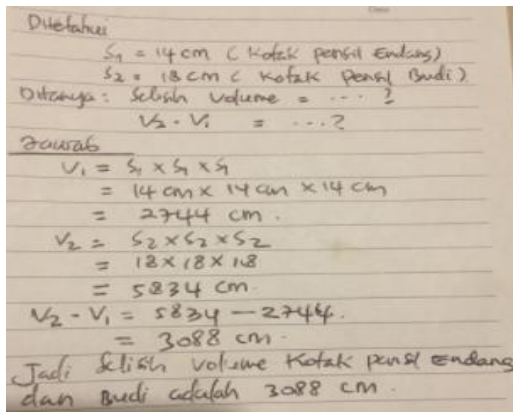 Diketahui
S1 = 14 cm ( Kotak pensil Endang)
S2 = 18 cm ( Kotak pensil Budi )
Ditanya : Selisih Volume = ... ?
V2 - V1 = ... ?
Jawab
V1 = S1 x S1 x S1
= 14 cm x 14 cm x 14 cm
= 2744 cm .
V2 = S2 x S2 x S2
= 18 x 18 x 18
= 5834 cm.
V2 - V1 = 5834 - 2744.
= 3088 cm .
Jadi Selisih volume Kotak pensil Endang
dan Budi adalah 3088 cm .